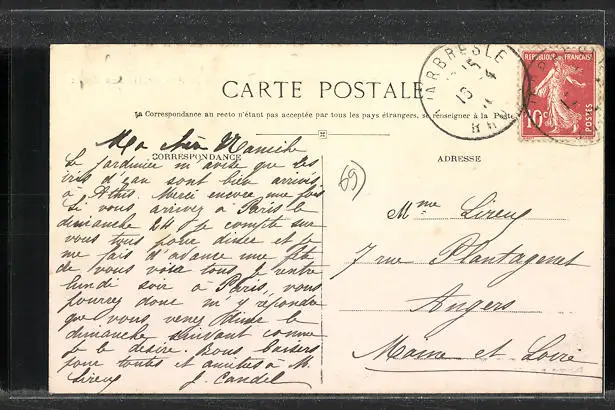 CARTE POSTALE
La Correspondance au recto n'étant pas acceptée par tous les pays étrangers, se renseigner à la Poste
CORRESPONDANCE
Ma chère
Le jardinier m'avise que les
iris d'eau sont bien arrivés
à Athis. Merci encore une fois
Si vous arrivez à Paris le
dimanche 24 je compte sur
vous tous pour diner et je
me fais d'avance une fête
de vous voir tous. Je rentre
lundi soir à Paris, vous
pourrez donc m'y répondre
que vous venez diner le
dimanche suivant comme
je le désire. Bons baisers
pour toutes et amitiés à M.
Lireux J. Candel
ADRESSE
Mme Lireux
7 rue Plantagenet
Angers
Maine et Loire
69
L'ARBRESLE
15
REPUBLIQUE FRANÇAISE
10c
POSTES